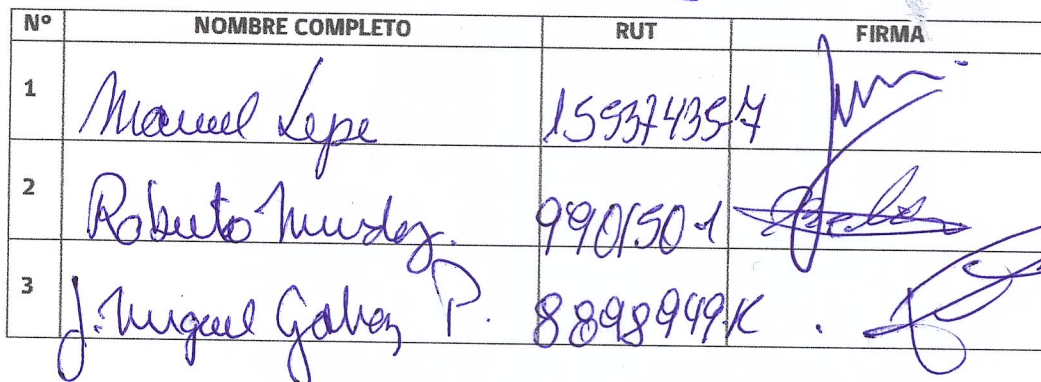 Nº NOMBRE COMPLETO RUT FIRMA
1 Manuel Lepe 15537435-7
2 Roberto Muñoz. 9901501-1
3 J. Miguel Galvez P. 8898949K